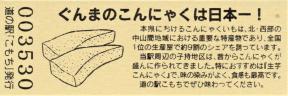 ぐんまのこんにゃくは日本一！
本県におけるこんにゃくいもは、北・西部の
中山間地域における重要な特産物であり、全国
1位の生産量で約9割のシェアを誇っています。
当駅周辺の子持地区は、昔からこんにゃくが
盛んに作られてきました。特におすすめは「生芋
こんにゃく」で、味の染みがよく、食感も最高です。
道の駅こもちでぜひ味わってください。
003530
道の駅「こもち」発行